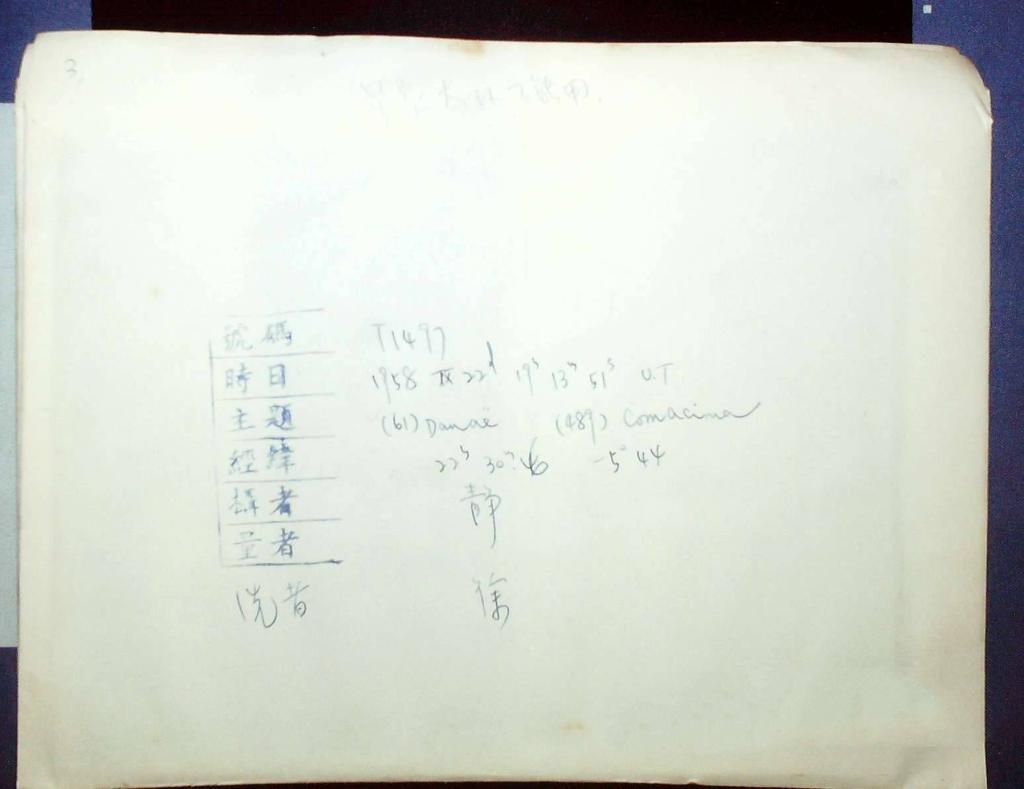 3,
號碼 T1497
時日 1958 IX 22d 19h 13m 51s U.T
主題 (61) Danaë (489) Comacina
經緯 22h 30m.46 -5° 44
攝者 靜
量者
洗者 徐